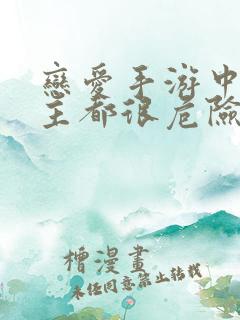 戀愛手游中
主都很危險
檜漫畫
未经同意禁止转载